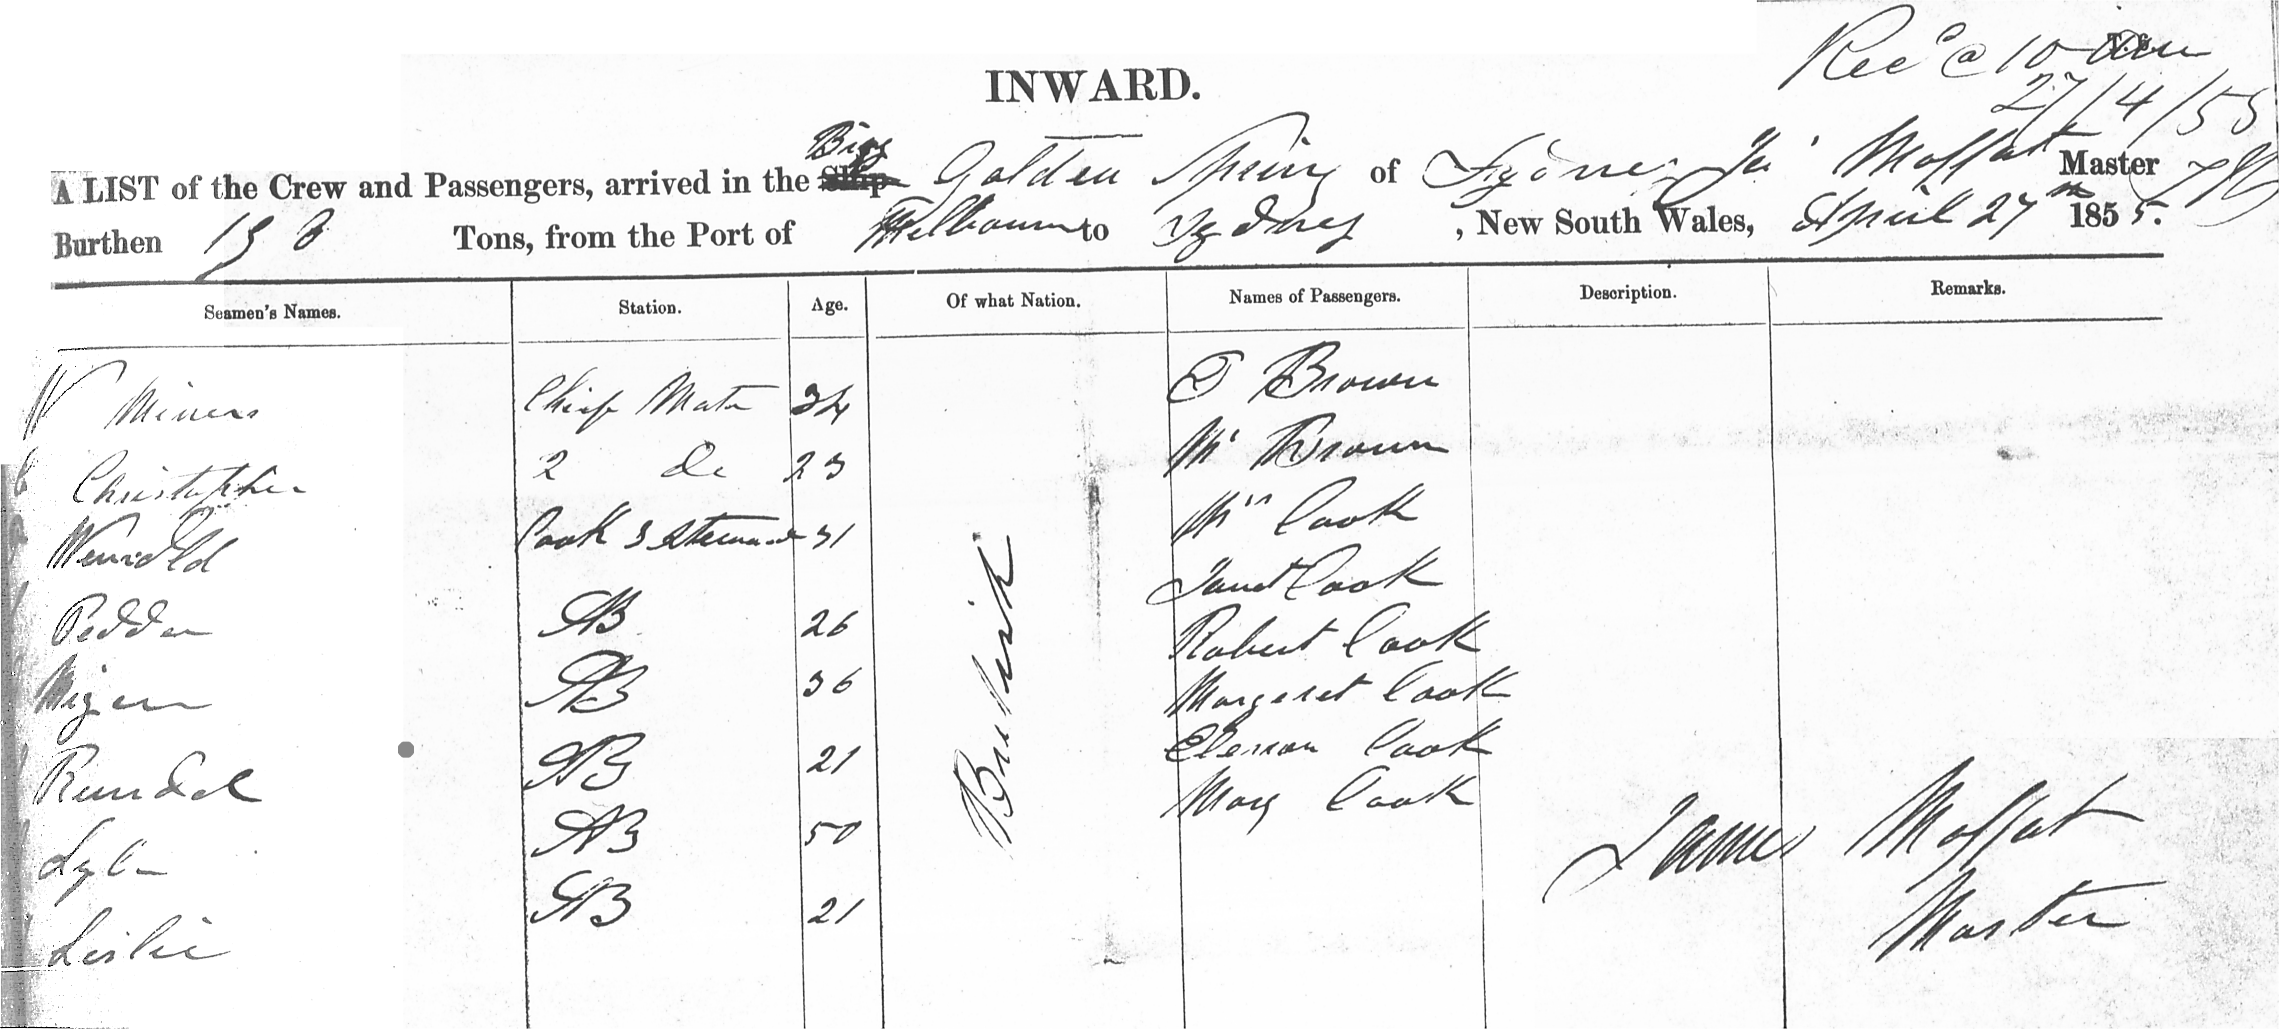 Rec'd @ 10 am
27/4/55
INWARD.
Brig
A LIST of the Crew and Passengers, arrived in the Ship Golden Spring of Sydney Jas Moffat Master
Burthen 138 Tons, from the Port of Melbourne to Sydney, New South Wales, April 27th 1855.
Seamen's Names. Station. Age. Of what Nation. Names of Passengers. Description. Remarks.
W Miners Chief Mate 34 British T Brown
Christopher 2 Do 23 Mr Brown
Cook & Steward 31 Mrs Cook
Pedder AB 26 Janet Cook
AB 36 Robert Cook
Rundel AB 21 Margaret Cook
Lyle AB 50 Cook
Leslie AB 21 Mary Cook
James Moffat
Master